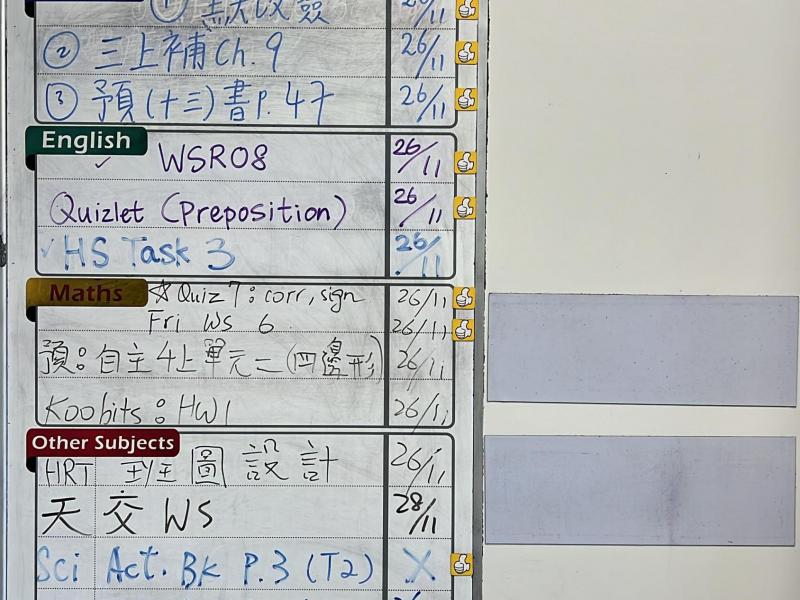 ① 默改簽 26/11
② 三上補Ch.9 26/11
③ 預(十三)書P.47 26/11
English
✓ WSR08 26/11
Quizlet (Preposition) 26/11
✓HS Task 3 26/11
Maths ☆Quiz 7: corr, sign 26/11
Fri WS 6 26/11
預：自主4上單元二(四邊形) 26/11
Koobits：HW1 26/11
Other Subjects
HRT 圖設計 26/11
天交WS 28/11
Sci Act. Bk P.3 (T2) X